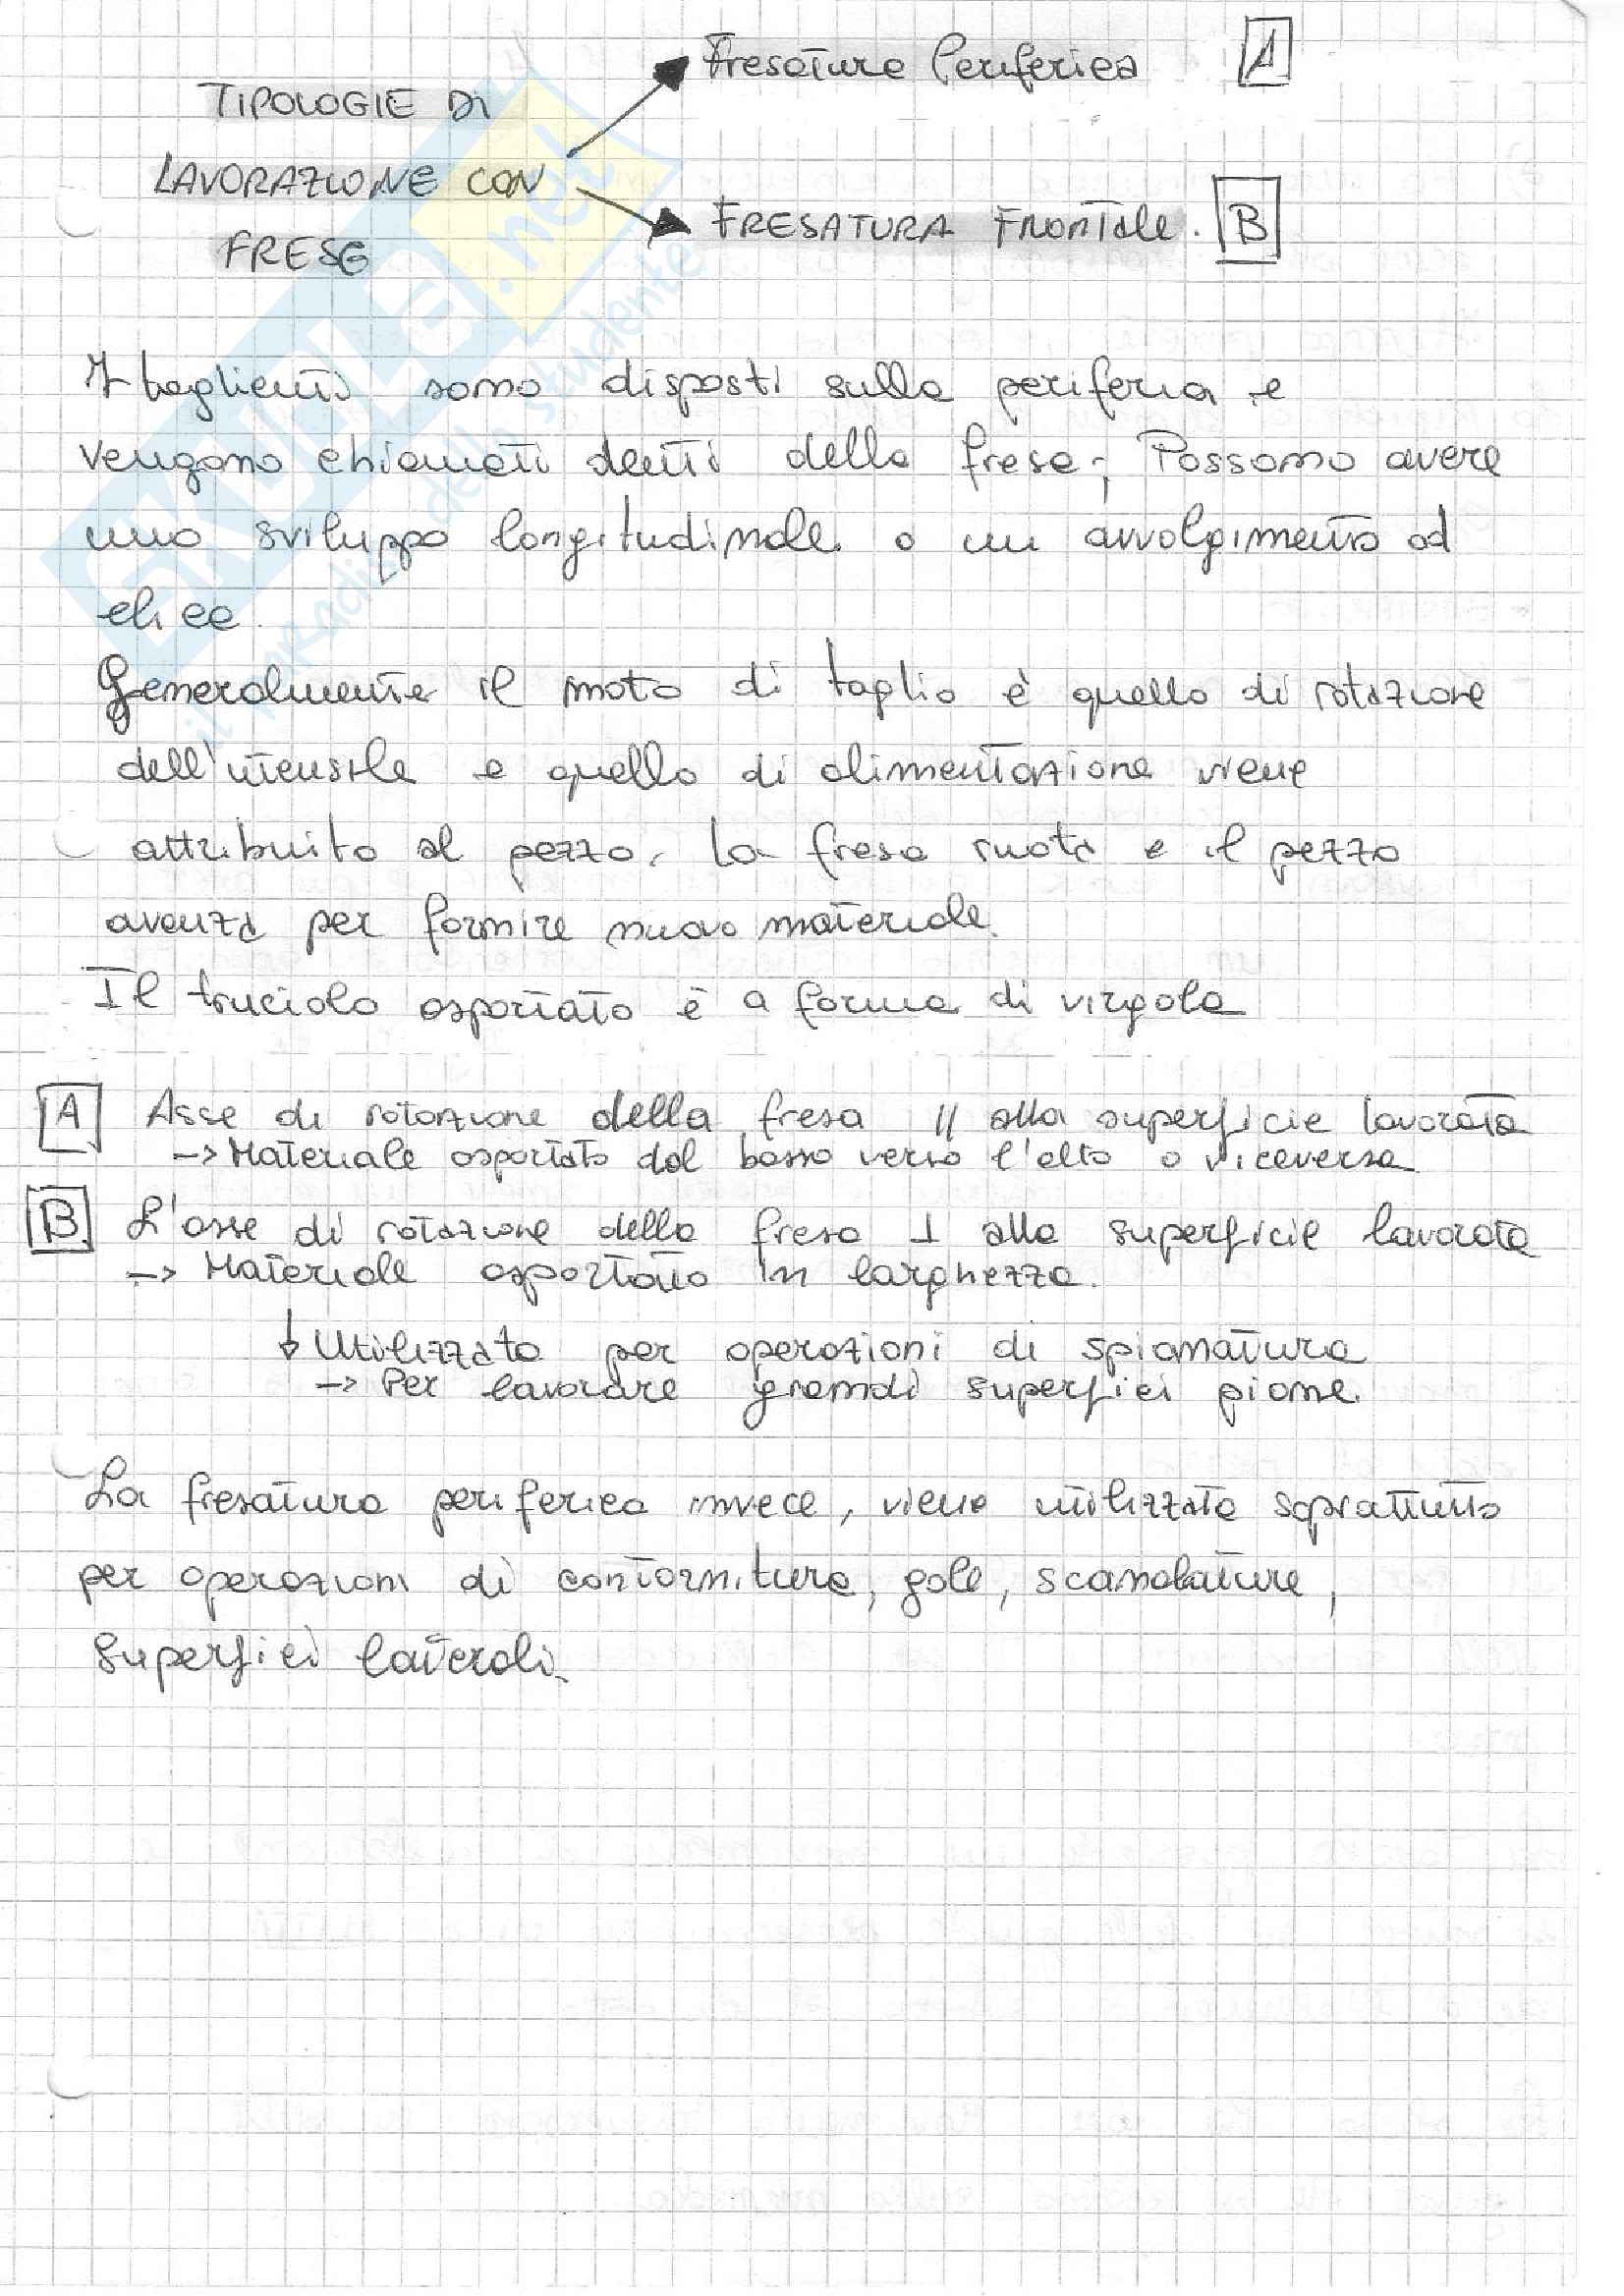 TIPOLOGIE DI
LAVORAZIONE CON
FRESE
Fresatura Periferica A
FRESATURA FRONTALE. B
I taglienti sono disposti sulla periferia e
vengono chiamati denti della fresa; Possono avere
uno sviluppo longitudinale o un avvolgimento ad
elica.
Generalmente il moto di taglio è quello di rotazione
dell'utensile e quello di alimentazione viene
attribuito al pezzo. La fresa ruota e il pezzo
avanza per fornire nuovo materiale.
Il truciolo asportato è a forma di virgola
A Asse di rotazione della fresa // alla superficie lavorata
-> Materiale asportato dal basso verso l'alto o viceversa
B L'asse di rotazione della fresa ⊥ alla superficie lavorata
-> Materiale asportato in larghezza.
↓ Utilizzata per operazioni di spianatura
-> Per lavorare grandi superfici piane.
La fresatura periferica invece, viene utilizzata soprattutto
per operazioni di contornitura, gole, scanalature,
superfici laterali.
SKUOLA.net
il paradiso dello studente